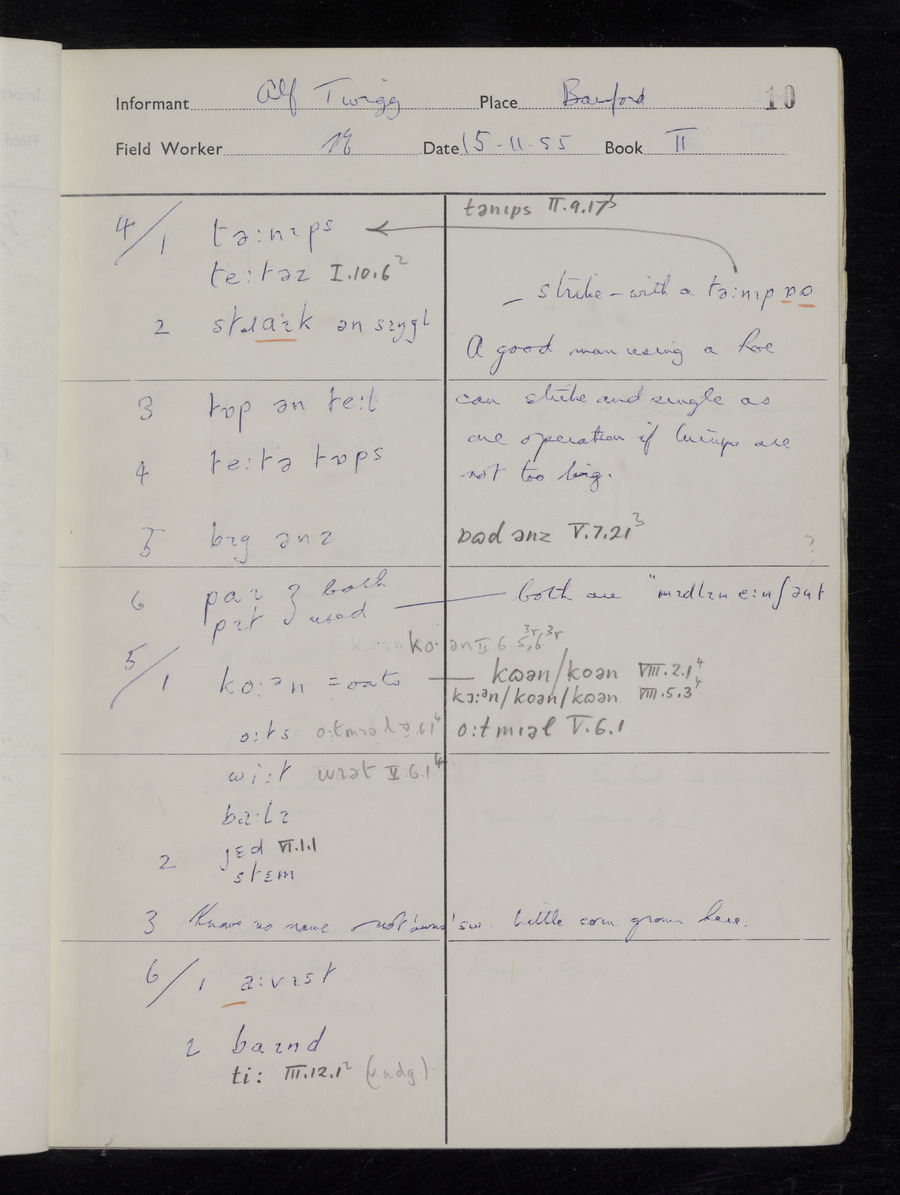 Informant Alf Twigg Place Bamford 10
Field Worker Date 15-11-55 Book II
tənɪps II.9.17³
4/1 tə:nɪps
te:təz I.10.6²
– strike – with a tə:nɪp
2 ən sɪŋgl
A good man using a hoe
3 tɒp ən te:l
can strike and single as
one operation if turnips are
4 te:tə tɒps
not too big.
5 bɪg ənz
ɒdd ənz V.7.21³
?
6 paɪ } both
pɪt } used
both are
II.6
5/1 ko:ən = oats
kωən/koən VIII.2.1⁴
kɔ:ᵊn/koən/kωən VIII.5.3⁴
o:ts o:tmɪəl V.6.1⁴
o:tmɪəl V.6.1
wi:t wɪət V.6.1⁴
ba:lɪ
2 jɛd VI.1.1
stɛm
3 Knows no name little corn grown here.
6/1 a:vɪst
2 baɪnd
ti: III.12.1²